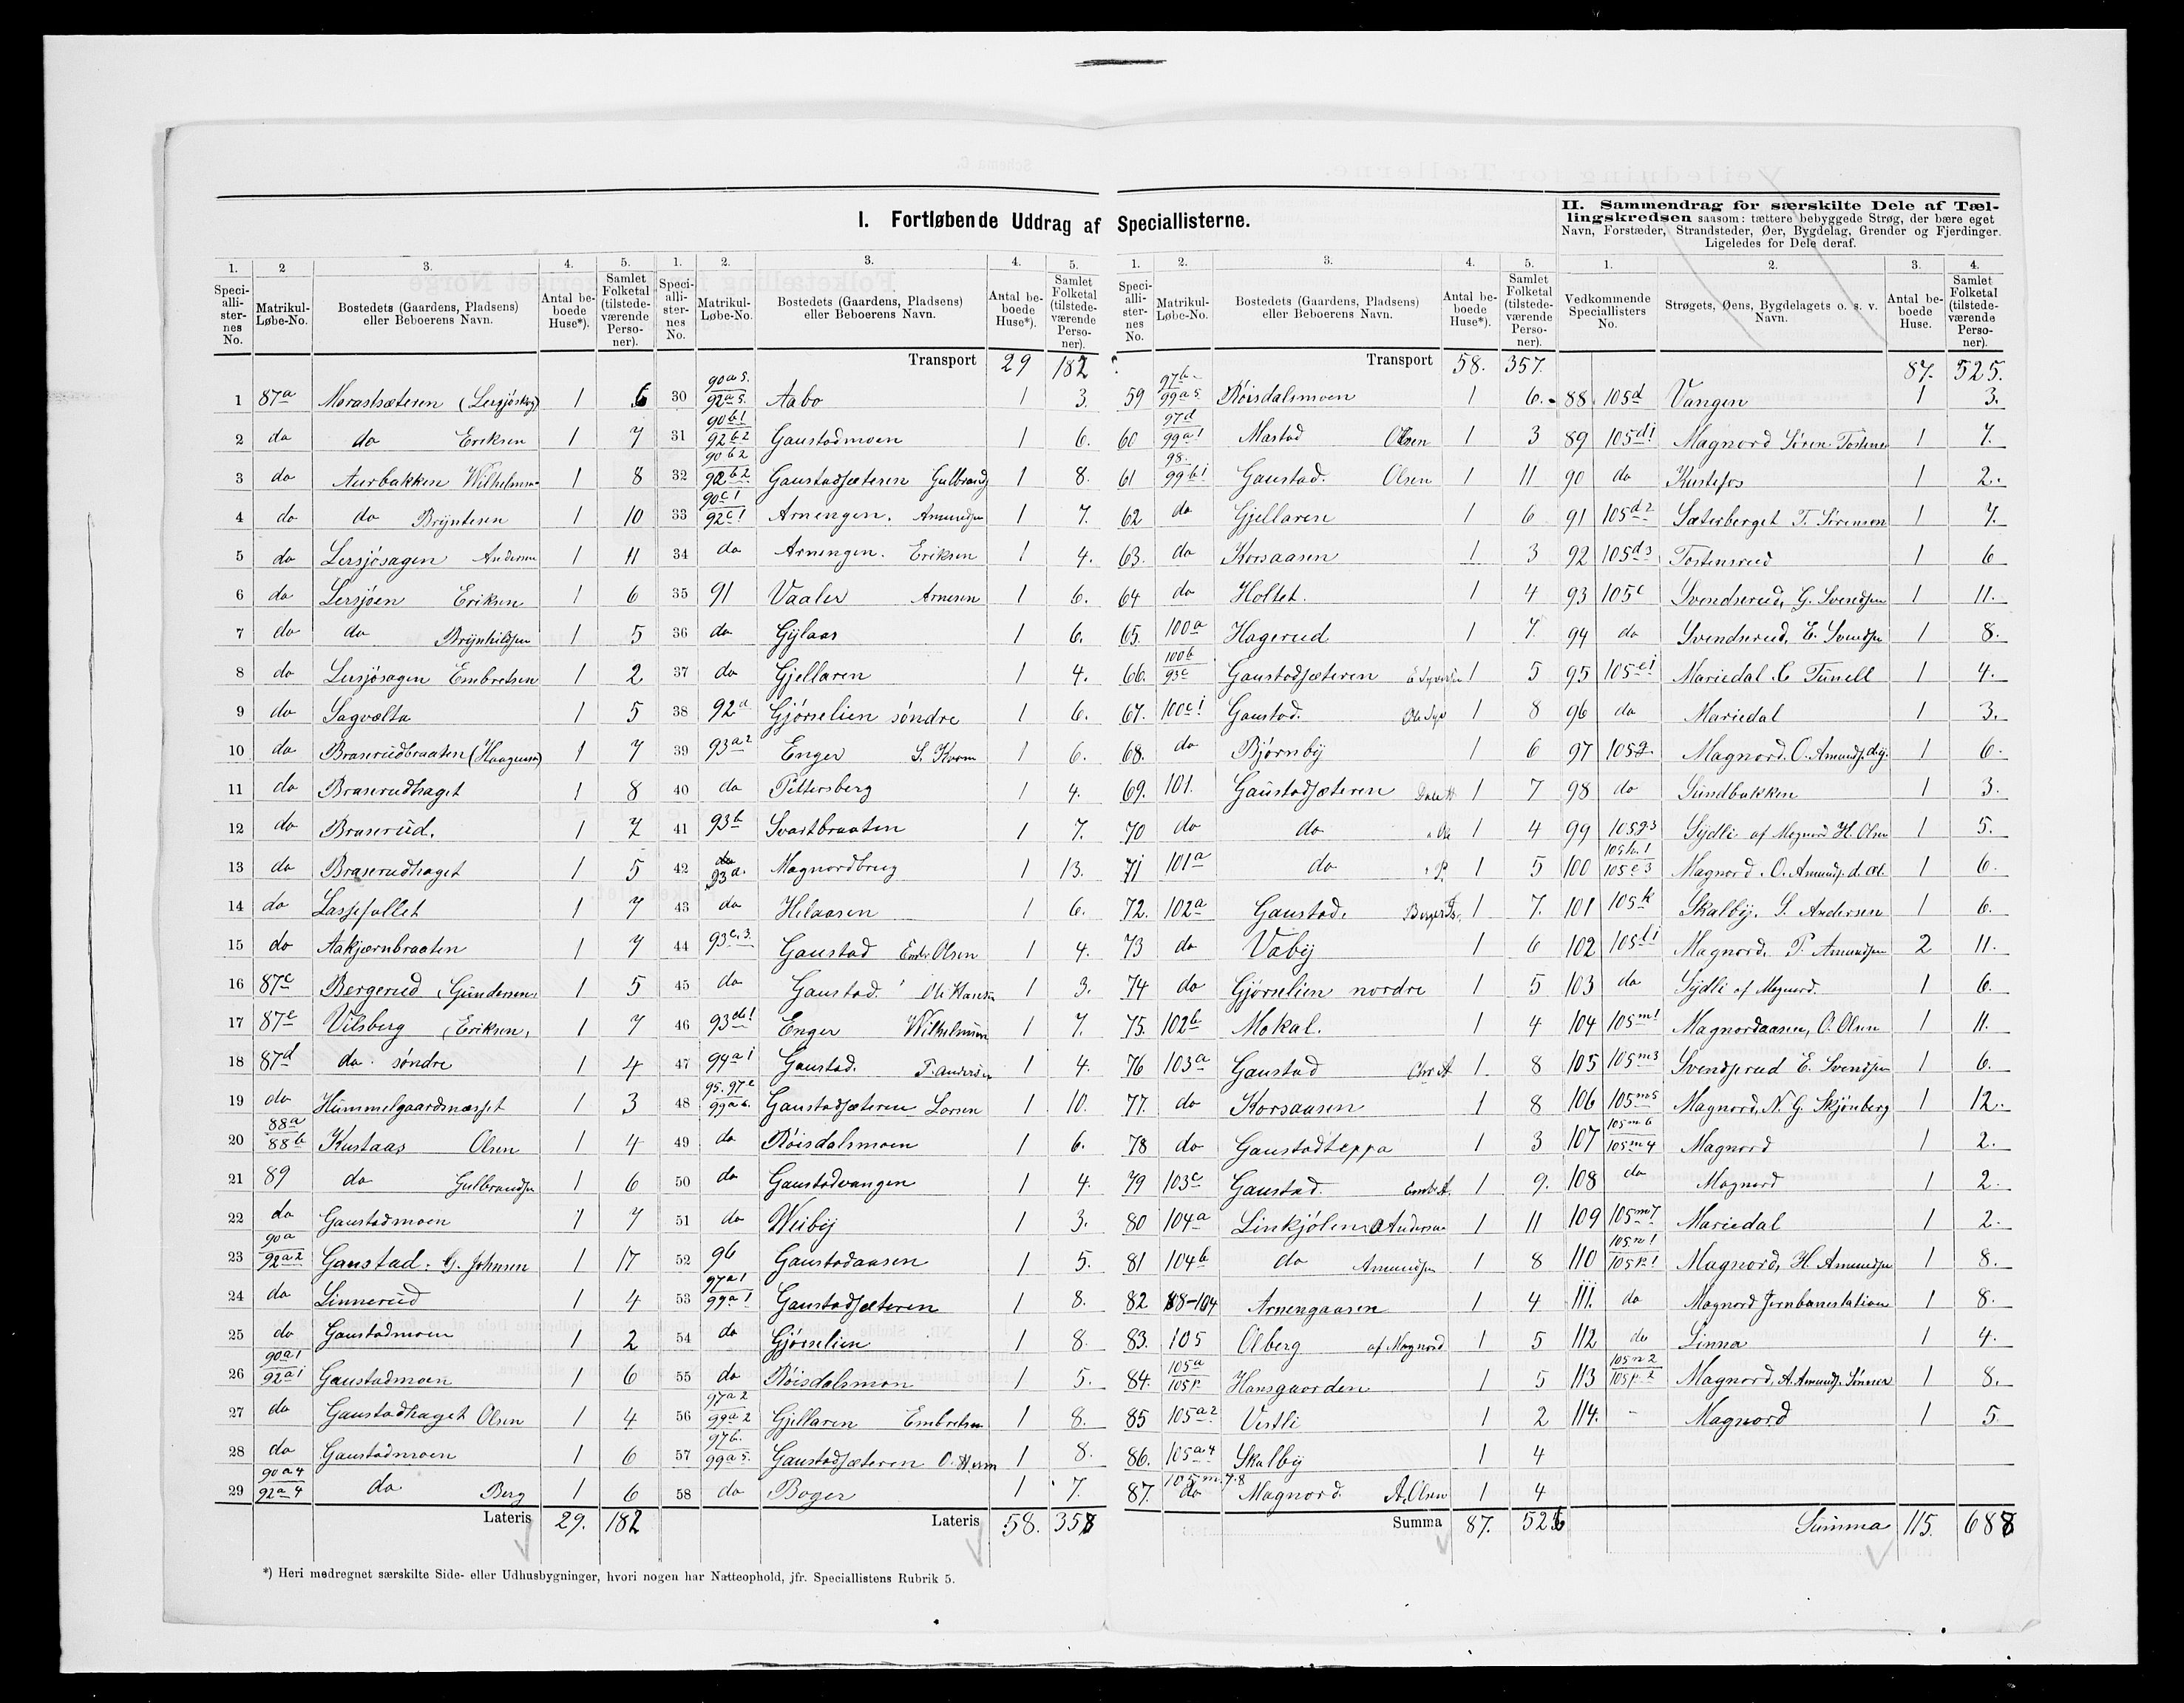 I. Fortløbende Uddrag af Speciallisterne.
II. Sammendrag for særskilte Dele af Tæl-
lingskredsen saasom: tættere bebyggede Strøg, der bære eget
Navn, Forstæder, Strandsteder, Øer, Bygdelag, Grender og Fjerdinger.
Ligeledes for Dele deraf.
1. Speci-alli-ster-nes No. 2 Matrikul-Løbe-No. 3. Bostedets (Gaardens, Pladsens) eller Beboerens Navn. 4. Antal be-boede Huse*). 5. Samlet Folketal (tilstede-værende Perso-ner).
1 87a Morastsæteren 1 6
2 do do Eriksen 1 7
3 do Aurbakken 1 8
4 do do Bryntesen 1 10
5 do Lersjøsagen Andersen 1 11
6 do Lersjøen Eriksen 1 6
7 do do Brynhildsen 1 5
8 do Lersjøsagen Embretsen 1 2
9 do Sagvælta 1 5
10 do Braserudbraaten (Haagensen) 1 7
11 do Braserudhaget 1 8
12 do Braserud. 1 7
13 do Braserudhaget 1 5
14 do Lassefallet 1 7
15 do Aakjærnbraaten 1 7
16 87c Bergerud (Gundersen) 1 5
17 87e Vilsberg (Eriksen) 1 7
18 87d do søndre 1 4
19 do Hummelgaardsnæsset 1 3
20 88a 88b Kustaas Olsen 1 4
21 89 do Gulbrandsen 1 6
22 do Gaustadmoen 1 7
23 90a 92a2 Gaustad. G. Johnsen 1 17
24 do Linnerud 1 4
25 do Gaustadmoen 1 2
26 90a1 92a1 Gaustadmoen 1 6
27 do Gaustadhaget Olsen 1 4
28 do Gaustadmoen 1 6
29 90a4 92a4 do Berg 1 6
Lateris 29. 182
1. Speci-alli-ster-nes No. 2. Matrikul-Løbe-No. 3. Bostedets (Gaardens, Pladsens) eller Beboerens Navn. 4. Antal be-boede Huse*). 5. Samlet Folketal (tilstede-værende Perso-ner).
Transport 29 182
30 90a5. 92a5. Aabo 1 3.
31 90b1 92b2 Gaustadmoen 1 6.
32 90b2 92b2 Gaustadsæteren Gulbrand 1 8.
33 90c1 92c1 Arnengen. Amundsen 1 7.
34 do Arnengen. Eriksen 1 4.
35 91 Vaaler Arnesen 1 6.
36 do Gylaas 1 6.
37 do Gjellaren 1 4.
38 92a Gjørselien søndre 1 6.
39 93a2 Enger 1 6.
40 do Pettersberg 1 4.
41 93b Svartbraaten 1 7.
42 93d. Magnordbrug 1 13.
43 do Helaasen 1 6.
44 93c.3. Gaustad Embr Olsen 1 4.
45 do Gaustad. Ole Hansen 1 3.
46 93d1 Enger Wilhelmsen 1 7.
47 94a1 Gaustad. P. Andersen 1 4.
48 95.97c 99a6. Gaustadsæteren Larsen 1 10.
49 do Røisdalsmoen 1 6.
50 do Gaustadvangen 1 4.
51 do Weiby 1 3.
52 96 Gaustadaasen 1 5.
53 97a1 99a1 Gaustadsæteren 1 8.
54 do Gjørselien 1 8.
55 do Røisdalsmoen 1 5.
56 97a2 99a2 Gjellaren Embretsen 1 8.
57 97b. 99a5. Gaustadsæteren O. Herm 1 8.
58 do Boger 1 7.
Lateris 58. 357
1. Speci-alli-ster-nes No. 2. Matrikul-Løbe-No. 3. Bostedets (Gaardens, Pladsens) eller Beboerens Navn. 4. Antal be-boede Huse*). 5. Samlet Folketal (tilstede-værende Perso-ner).
Transport 58. 357.
59 97b 99a5 Røisdalsmoen 1 6.
60 97d 99a1 Mastad Olsen 1 3
61 98. 99b1 Gaustad. Olsen 1 11
62 do Gjellaren 1 6
63. do Korsaasen 1 3
64 do Holtet. 1 4
65. 100a Hagerud 1 7.
66. 100b 93c Gaustadsæteren 1 5
67. 100c1 Gaustad. 1 8
68. do Bjørnby 1 6
69. 101. Gaustadsæteren 1 7
70 do do 1 4
71 101a do 1 5
72. 102a Gaustad. 1 7.
73 do Vaby 1 6
74 do Gjørselien nordre 1 5
75. 102b Mokal. 1 4
76 103a Gaustad Chr. A 1 8
77. do Korsaasen 1 8
78 do Gaustadteppa 1 3
79 103c Gaustad. Emb. A. 1 9.
80 104a Linkjølen Andersen 1 11
81 104b do Amundsen 1 8
82 88-104 Arnengaasen 1 4
83. 105 Olberg af Magnord 1 5
84. 105a 105p Hansgaarden 1 5
85 105a2 Vestli 1 2
86. 105a4 Skalby 1 4
87. 105m.7.8 do Magnord. A. Olsen 1 4
Summa 87. 526
1. Vedkommende Speciallisters No. 2. Strøgets, Øens, Bygdelagets o. s. v. Navn. 3. Antal be-boede Huse. 4. Samlet Folketal (tilstede-værende Perso-ner).
87. 525.
88 105d Vangen 1 3.
89 105d1 Magnord Søren Tostensen 1 7.
90 do Kustefos 1 2.
91 105d2 Sæterberget T. Sørensen 1 7.
92 105d3 Tostensrud 1 6
93 105e Svendserud, G. Svendsen 1 11.
94 do Svendserud, E. Svendsen 1 8.
95 105e1 Mariedal C Tunell 1 4.
96 do Mariedal 1 3.
97 105g. Magnord. O. Amunds. d.y. 1 6.
98 do Sundbakken 1 3.
99 105g3 Sydli af Magnord H. Olsen 1 5.
100 105h.1 105e3 Magnord. O. Amunds. d. æl. 1 6.
101 105k Skalby. S. Andersen 1 6.
102 105l1 Magnord. P. Amundsen 2 11.
103 do Sydli af Magnord. 1 6.
104 105m1 Magnordaasen, O. Olsen 1 11.
105 105m3 Svendserud E. Svendsen 1 6.
106 105m5 Magnord, N. G. Skjønberg 1 12.
107 105m6 105m4 Magnord 1 2.
108 do Magnord 1 2.
109 105m7 Mariedal 1 2.
110 105n1 105p1 Magnord, H. Amundsen 1 8.
111. do Magnord Jernbanestation 1 8.
112 do Linna 1 4.
113 105n2 105p.2 Magnord. A. Amunds. Sønner 1 8.
114. - Magnord 1 5
Summa 115. 688
*) Heri medregnet særskilte Side- eller Udhusbygninger, hvori nogen har Natteophold, jfr. Speciallistens Rubrik 5.